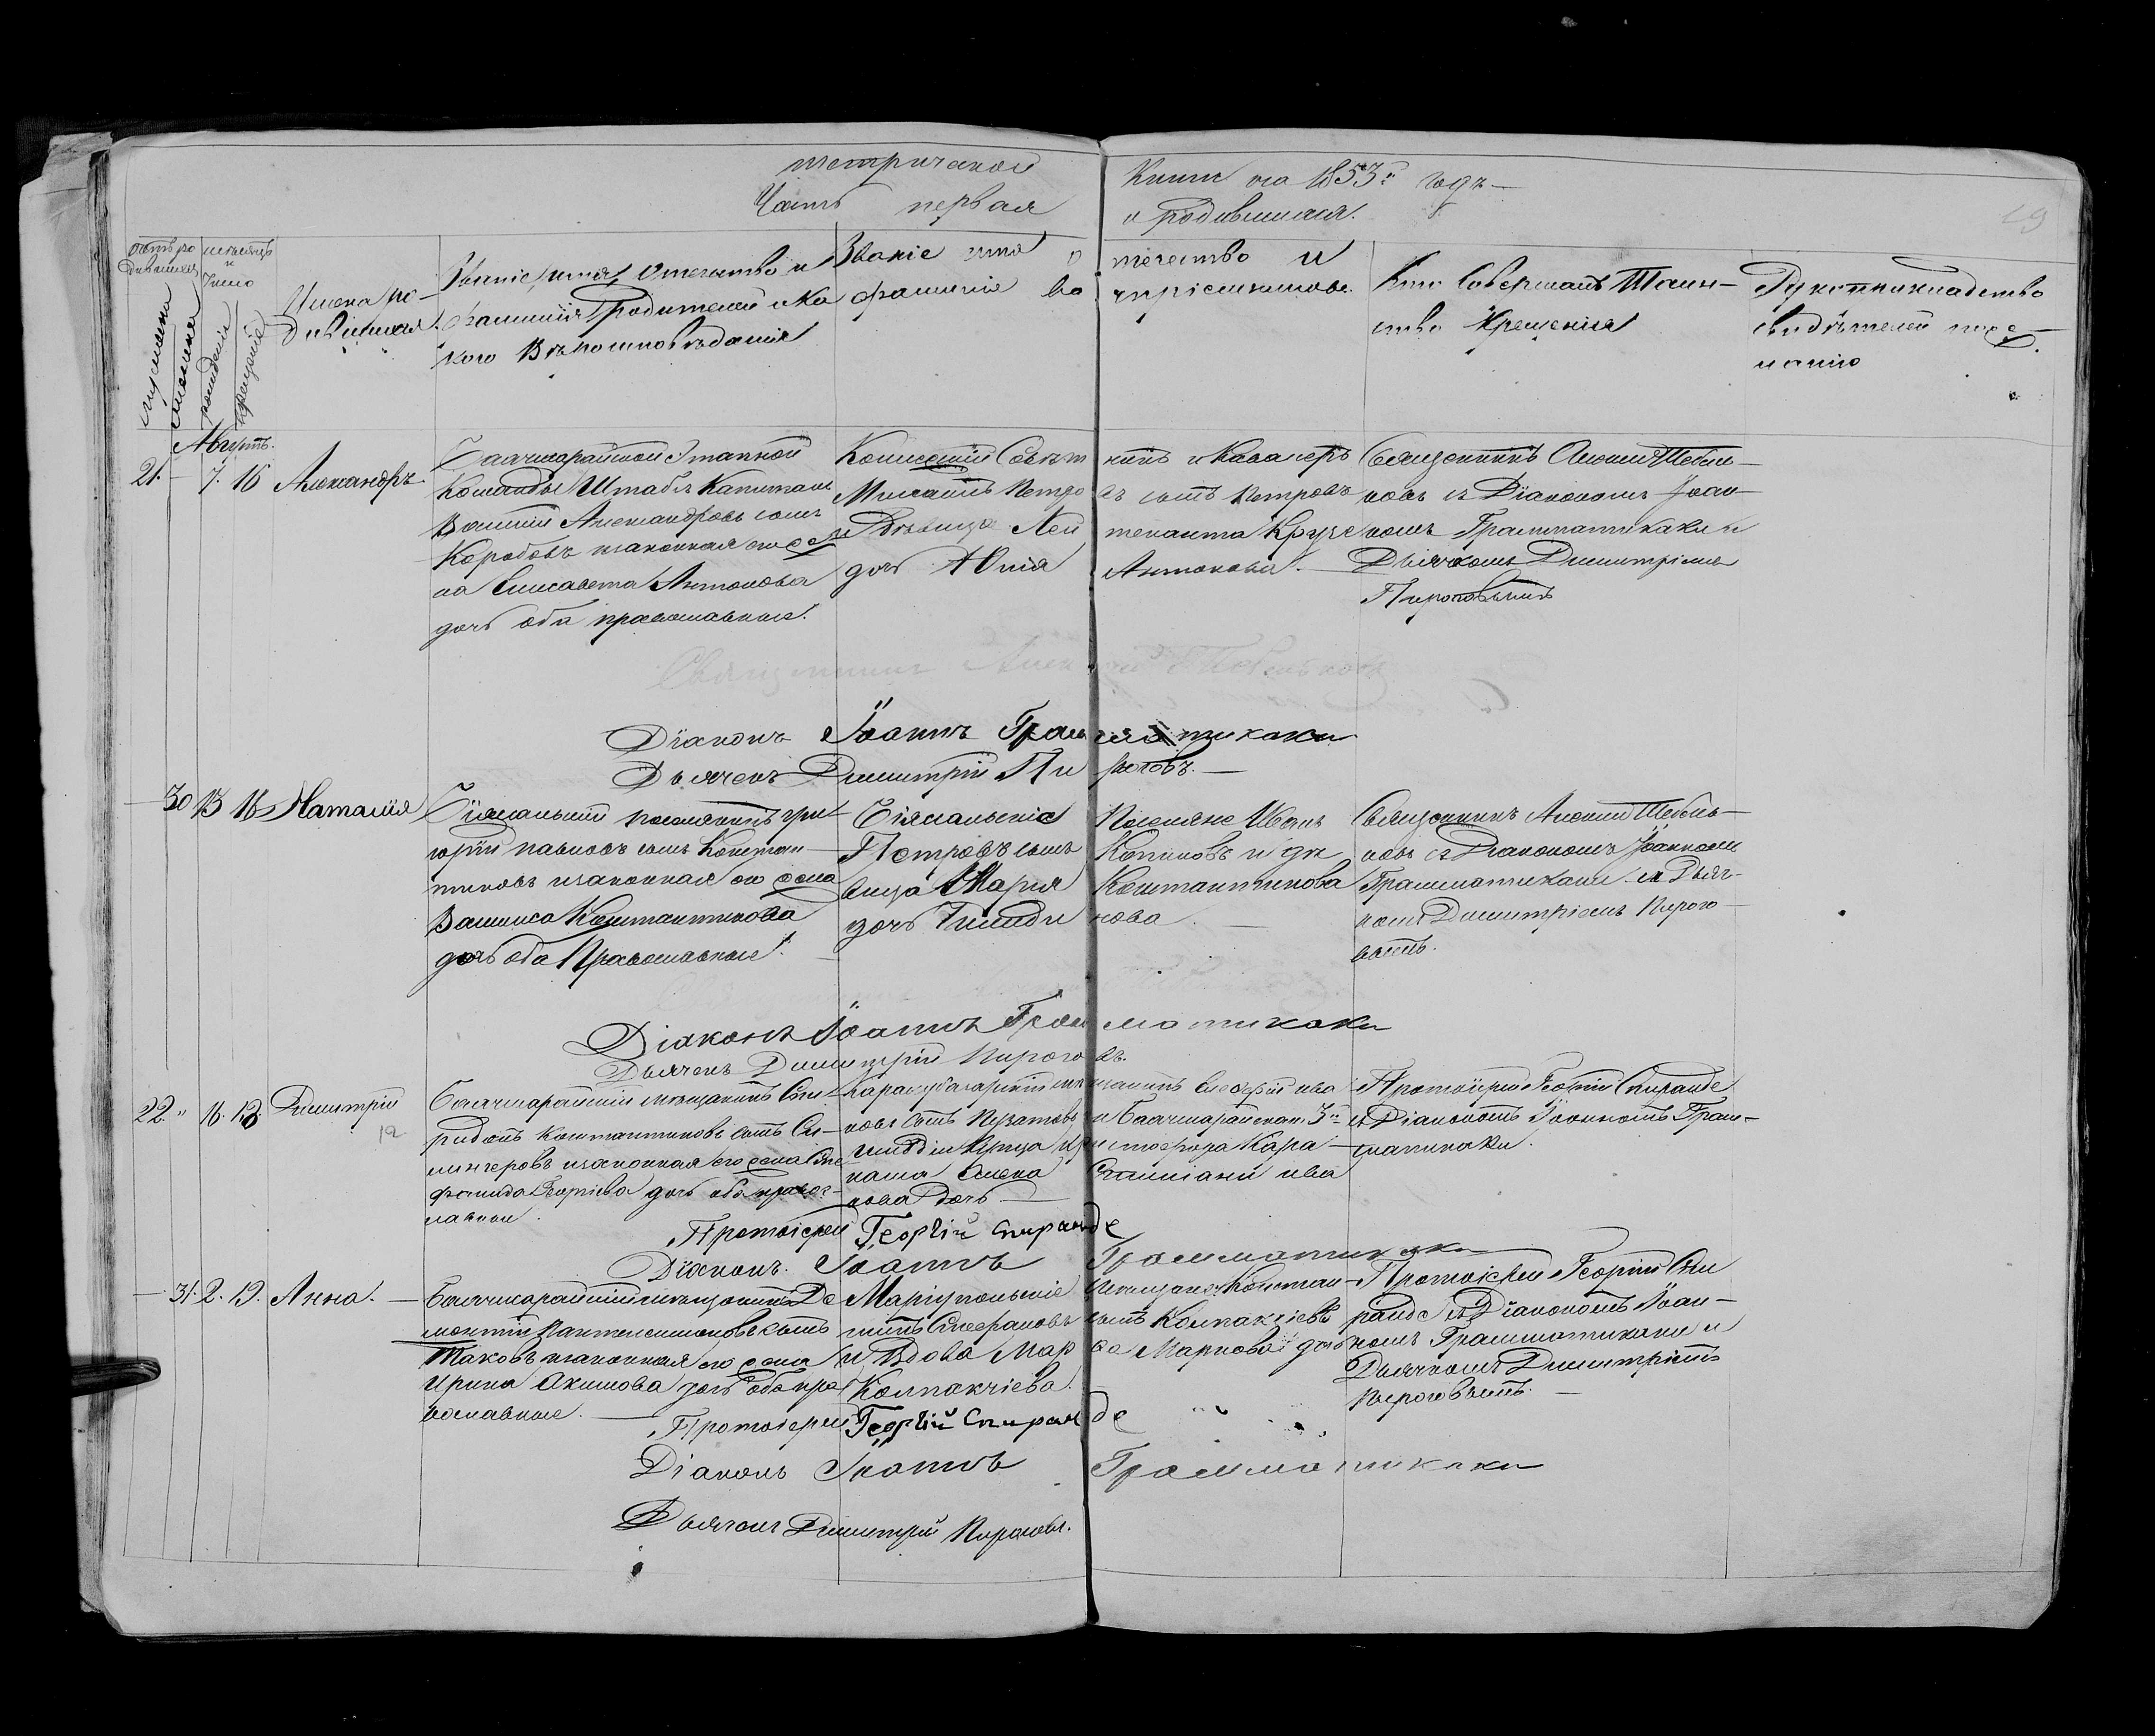 метрической Книги на 1853й годъ
Часть первая о родившихся.
19
Счетъ родившихся
мѣсяцъ и число
мужеска
женска
рожденія
крещенія
Имена родившихся.
Званіе, имя, отечество и
фамилія родителей и ка
кого вѣроисповѣданія
Званіе имя отечество и
фамилія воспріемниковъ.
Кто совершалъ Таин-
ство Крещенія
Рукоприкладство
свидѣтелей по же-
ланію
Августъ.
21. - 7. 16 Александръ.
Бахчисарайской Этапной
Команды Штабсъ Капитанъ
Василій Александровъ сынъ
Коробовъ изаконная его же
на Елисавета Антонова
дочь оба православные.
Колежскій Совѣтникъ и Кавалеръ
сынъ Петровъ
и Дѣвица
дочь Юлія Антонова.
Священникъ Алексій
новъ съ Діакономъ Іоан-
номъ Грамматикаки и
Дьячкомъ Димитріемъ
Пироговымъ
Священникъ Алексій
Діаконъ Іоаннъ Грамматикаки
Дьячекъ Димитрій Пироговъ.
30 13 16 Наталія
поселянинъ Гри
горій Павловъ сынъ Констан
тиновъ изаконная его жена
Василиса Константинова
дочь оба Православные.
Поселяне Иванъ
Петровъ сынъ и дѣ
вица Марія Константинова
дочь
Священникъ Алексій
новъ съ Діакономъ Іоанномъ
Грамматикаки и Дьяч-
комъ Димитріемъ Пирого
вымъ.
Діаконъ Іоаннъ Грамматикаки
Дьячекъ Димитрій Пироговъ.
22. 16. 18. Димитрій
12
Бахчисарайскій мѣщанинъ Спи-
ридонъ Константиновъ сынъ
изаконная его жена
Георгіева дочь оба правос-
лавные.
Карасубазарскій мѣщанинъ
новъ сынъ и Бахчисарайскаго 3й
Елена
нова дочь
Протоіерей Георгій Спиранде
съ Діакономъ Іоанномъ Грам-
матикаки.
Протоіерей Георгій Спиранде
Діаконъ. Іоаннъ Грамматикаки
31. 2. 19. Анна.
Бахчисарайскій мѣщанинъ
Пантелеимоновъ сынъ
изаконная его жена
Ирина Акимова дочь оба пра
вославные.
Маріупольскіе мѣщане: Констан-
тинъ Стефановъ сынъ Колпакчіевъ
и Вдова Маркова дочь
Колпакчіева.
Протоіерей Георгій Спи
ранде съ Діакономъ Іоан-
номъ Грамматикаки и
Дьячкомъ Димитріемъ
Пироговымъ.
Протоіерей Георгій Спиранде
Діаконъ Іоаннъ Грамматикаки
Дьячекъ Димитрій Пироговъ.